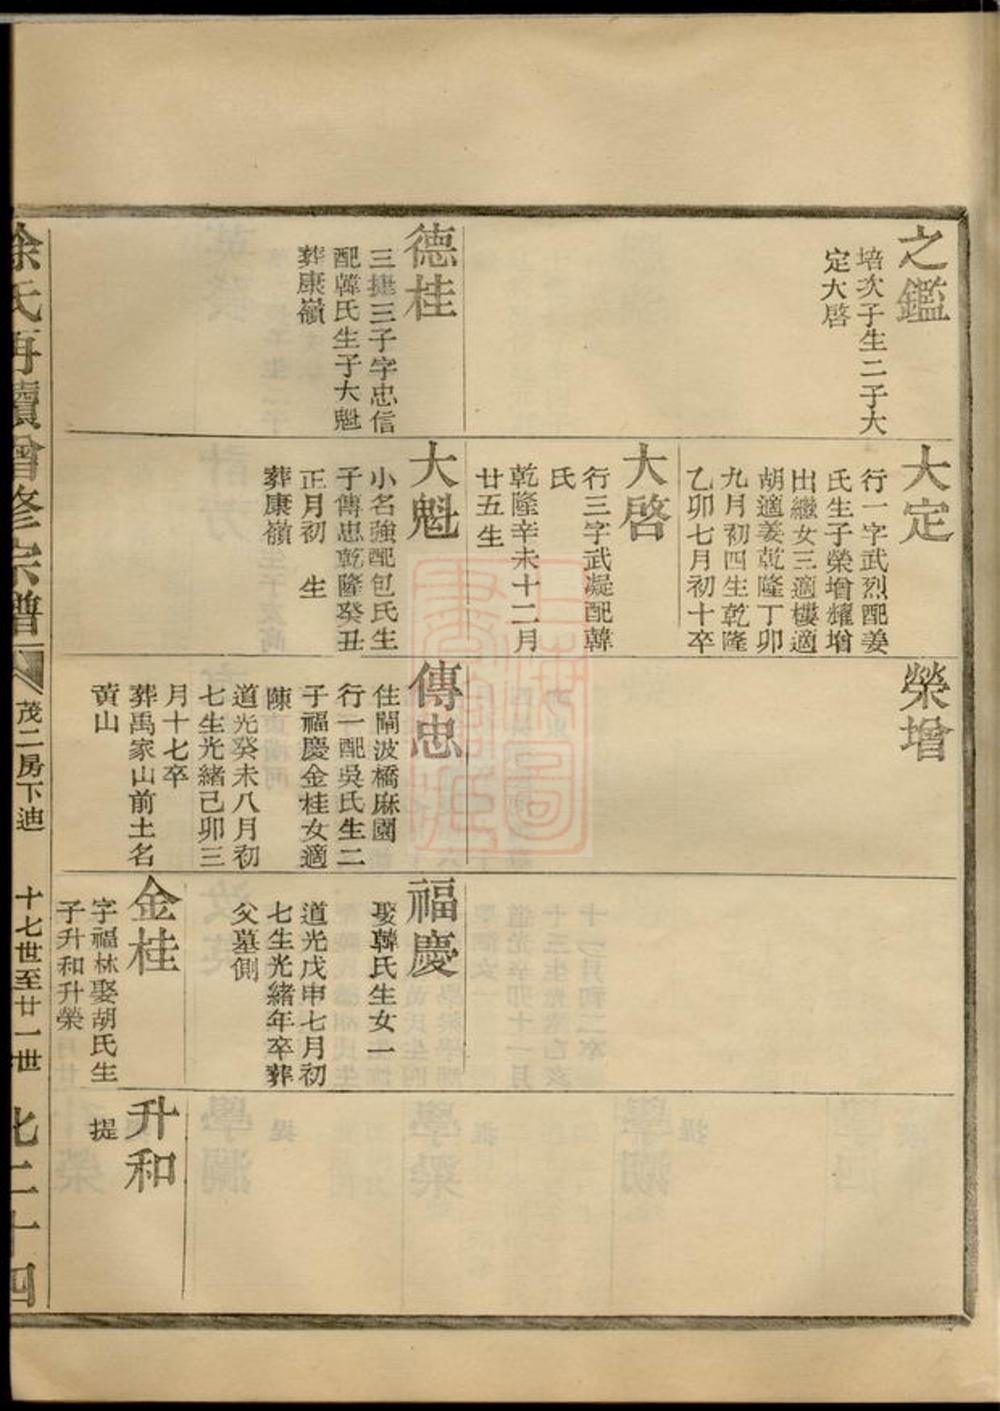 之鑑
培次子生二子大
定大啓
德桂
三捷三子字忠信
配韓氏生子大魁
葬康嶺
大定
行一字武烈配姜
氏生子榮增耀增
出繼女三適樓適
胡適姜乾隆丁卯
九月初四生乾隆
乙卯七月初十卒
大啓
行三字武凝配韓
氏
乾隆辛未十二月
廿五生
大魁
小名強配包氏生
子傳忠乾隆癸丑
正月初 生
葬康嶺
榮增
傳忠
住閘波橋麻園
行一配吳氏生二
子福慶金桂女適
陳
道光癸未八月初
七生光緒己卯三
月十七卒
葬禹家山前土名
黃山
福慶
娶韓氏生女一
道光戊申七月初
七生光緒年卒葬
父墓側
金桂
字福林娶胡氏生
子升和升榮
升和
提
徐氏再續增修宗譜
茂二房下迪
十七世至廿一世
化二十四